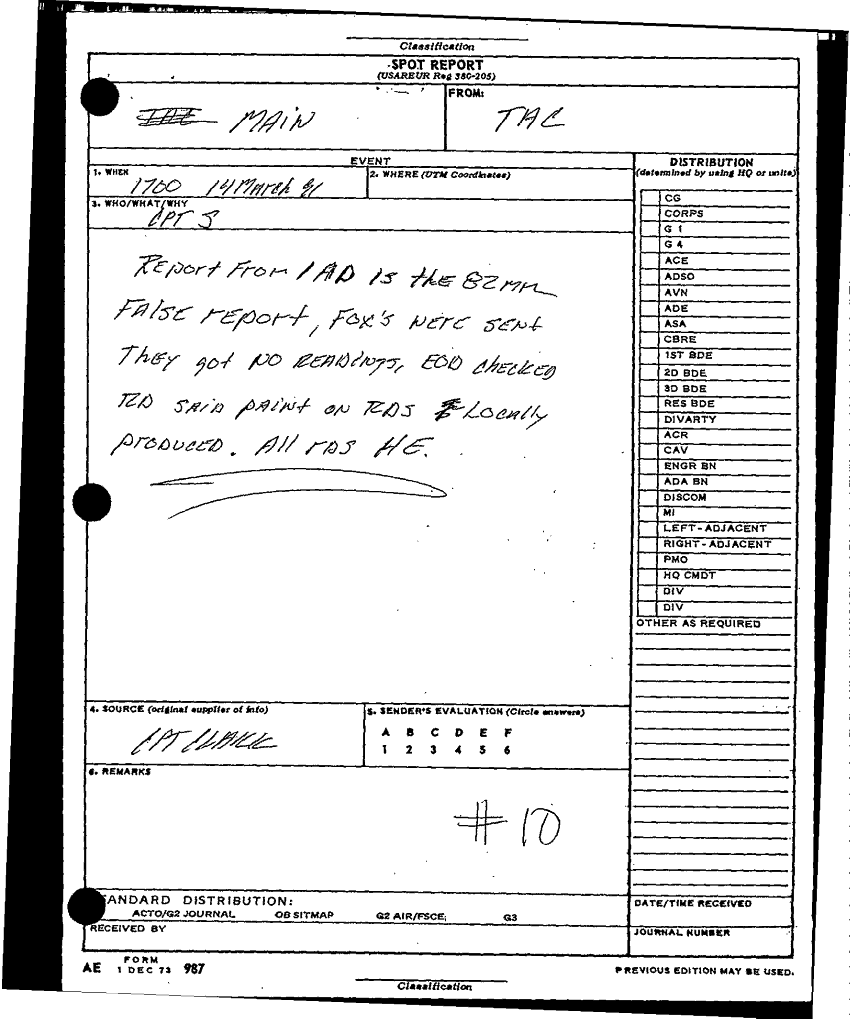 Classification
SPOT REPORT
(USAREUR Reg 380-205)
MAIN
FROM:
TAC
EVENT
1. WHEN
1700 14 March 91
2. WHERE (UTM Coordinates)
3. WHO/WHAT/WHY
CPT S
REPORT FROM 1AD IS the 82MM
FALSE report, FOX'S WERE SENT
THEY got NO READINGS, EOD CHECKED
RD SAID PAINT ON RDS LOCALLY
PRODUCED. All rds HE.
4. SOURCE (original supplier of info)
CPT
5. SENDER'S EVALUATION (Circle answers)
A B C D E F
1 2 3 4 5 6
6. REMARKS
#10
DISTRIBUTION
(determined by using HQ or units)
CG
CORPS
G 1
G 4
ACE
ADSO
AVN
ADE
ASA
CBRE
1ST BDE
2D BDE
3D BDE
RES BDE
DIVARTY
ACR
CAV
ENGR BN
ADA BN
DISCOM
MI
LEFT-ADJACENT
RIGHT-ADJACENT
PMO
HQ CMDT
DIV
DIV
OTHER AS REQUIRED
ANDARD DISTRIBUTION:
ACTO/G2 JOURNAL OB SITMAP G2 AIR/FSCE; G3
RECEIVED BY
DATE/TIME RECEIVED
JOURNAL NUMBER
AE FORM 1 DEC 73 987
PREVIOUS EDITION MAY BE USED.
Classification